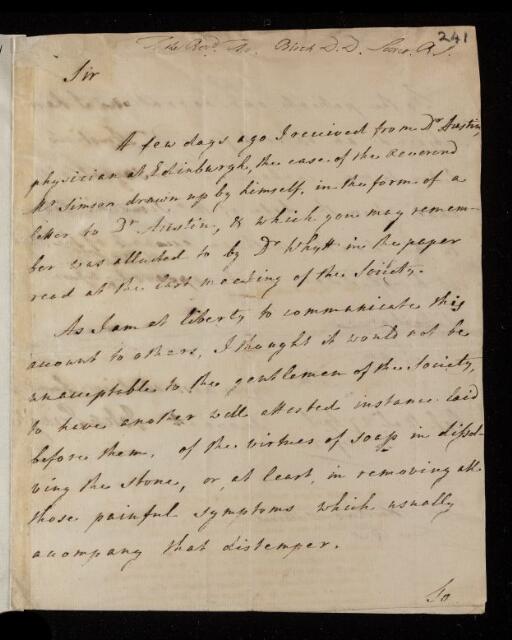 241
To the Revd. Dr. Birch D.D. Secret. R.S.
Sir
A few days ago I received from Dr Austin,
physician at Edinburgh, the case of the Reverend
Mr Simson drawn up by himself, in the form of a
letter to Dr Austin, & which you may remem-
ber was alluded to by Dr Whytt in the paper
read at the last meeting of the Society.
As I am at liberty to communicate this
account to others, I thought it would not be
unacceptable to the gentlemen of the Society,
to have another well attested instance laid
before them, of the virtues of soap in dissol-
ving the stone, or, at least, in removing all
those painful symptoms which usually
accompany that distemper.
So